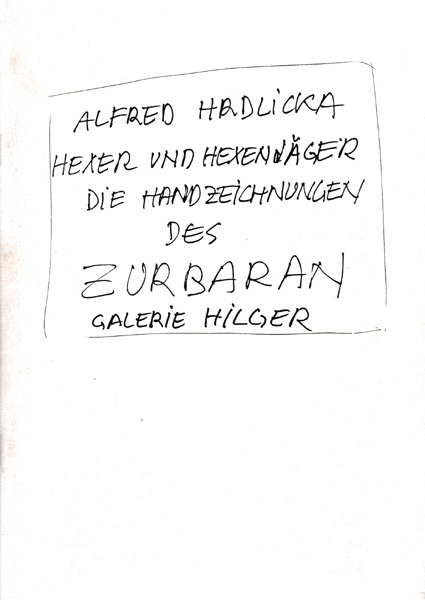 ALFRED HRDLICKA
HEXER UND HEXENJÄGER
DIE HANDZEICHNUNGEN
DES
ZURBARAN
GALERIE HILGER